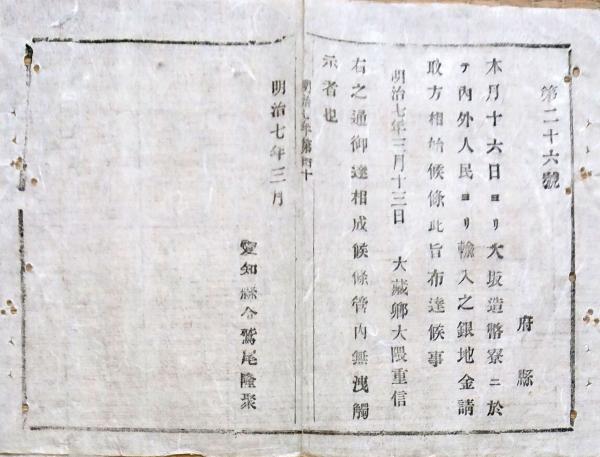 第二十六號
府縣
本月十六日ヨリ大坂造幣寮ニ於
テ內外人民ヨリ輸入之銀地金請
取方相始候條此旨布達候事
明治七年三月十三日　大藏卿大隈重信
右之通御達相成候條管內無洩觸
示者也
明治七年第四十
明治七年三月
愛知縣令鷲尾隆聚